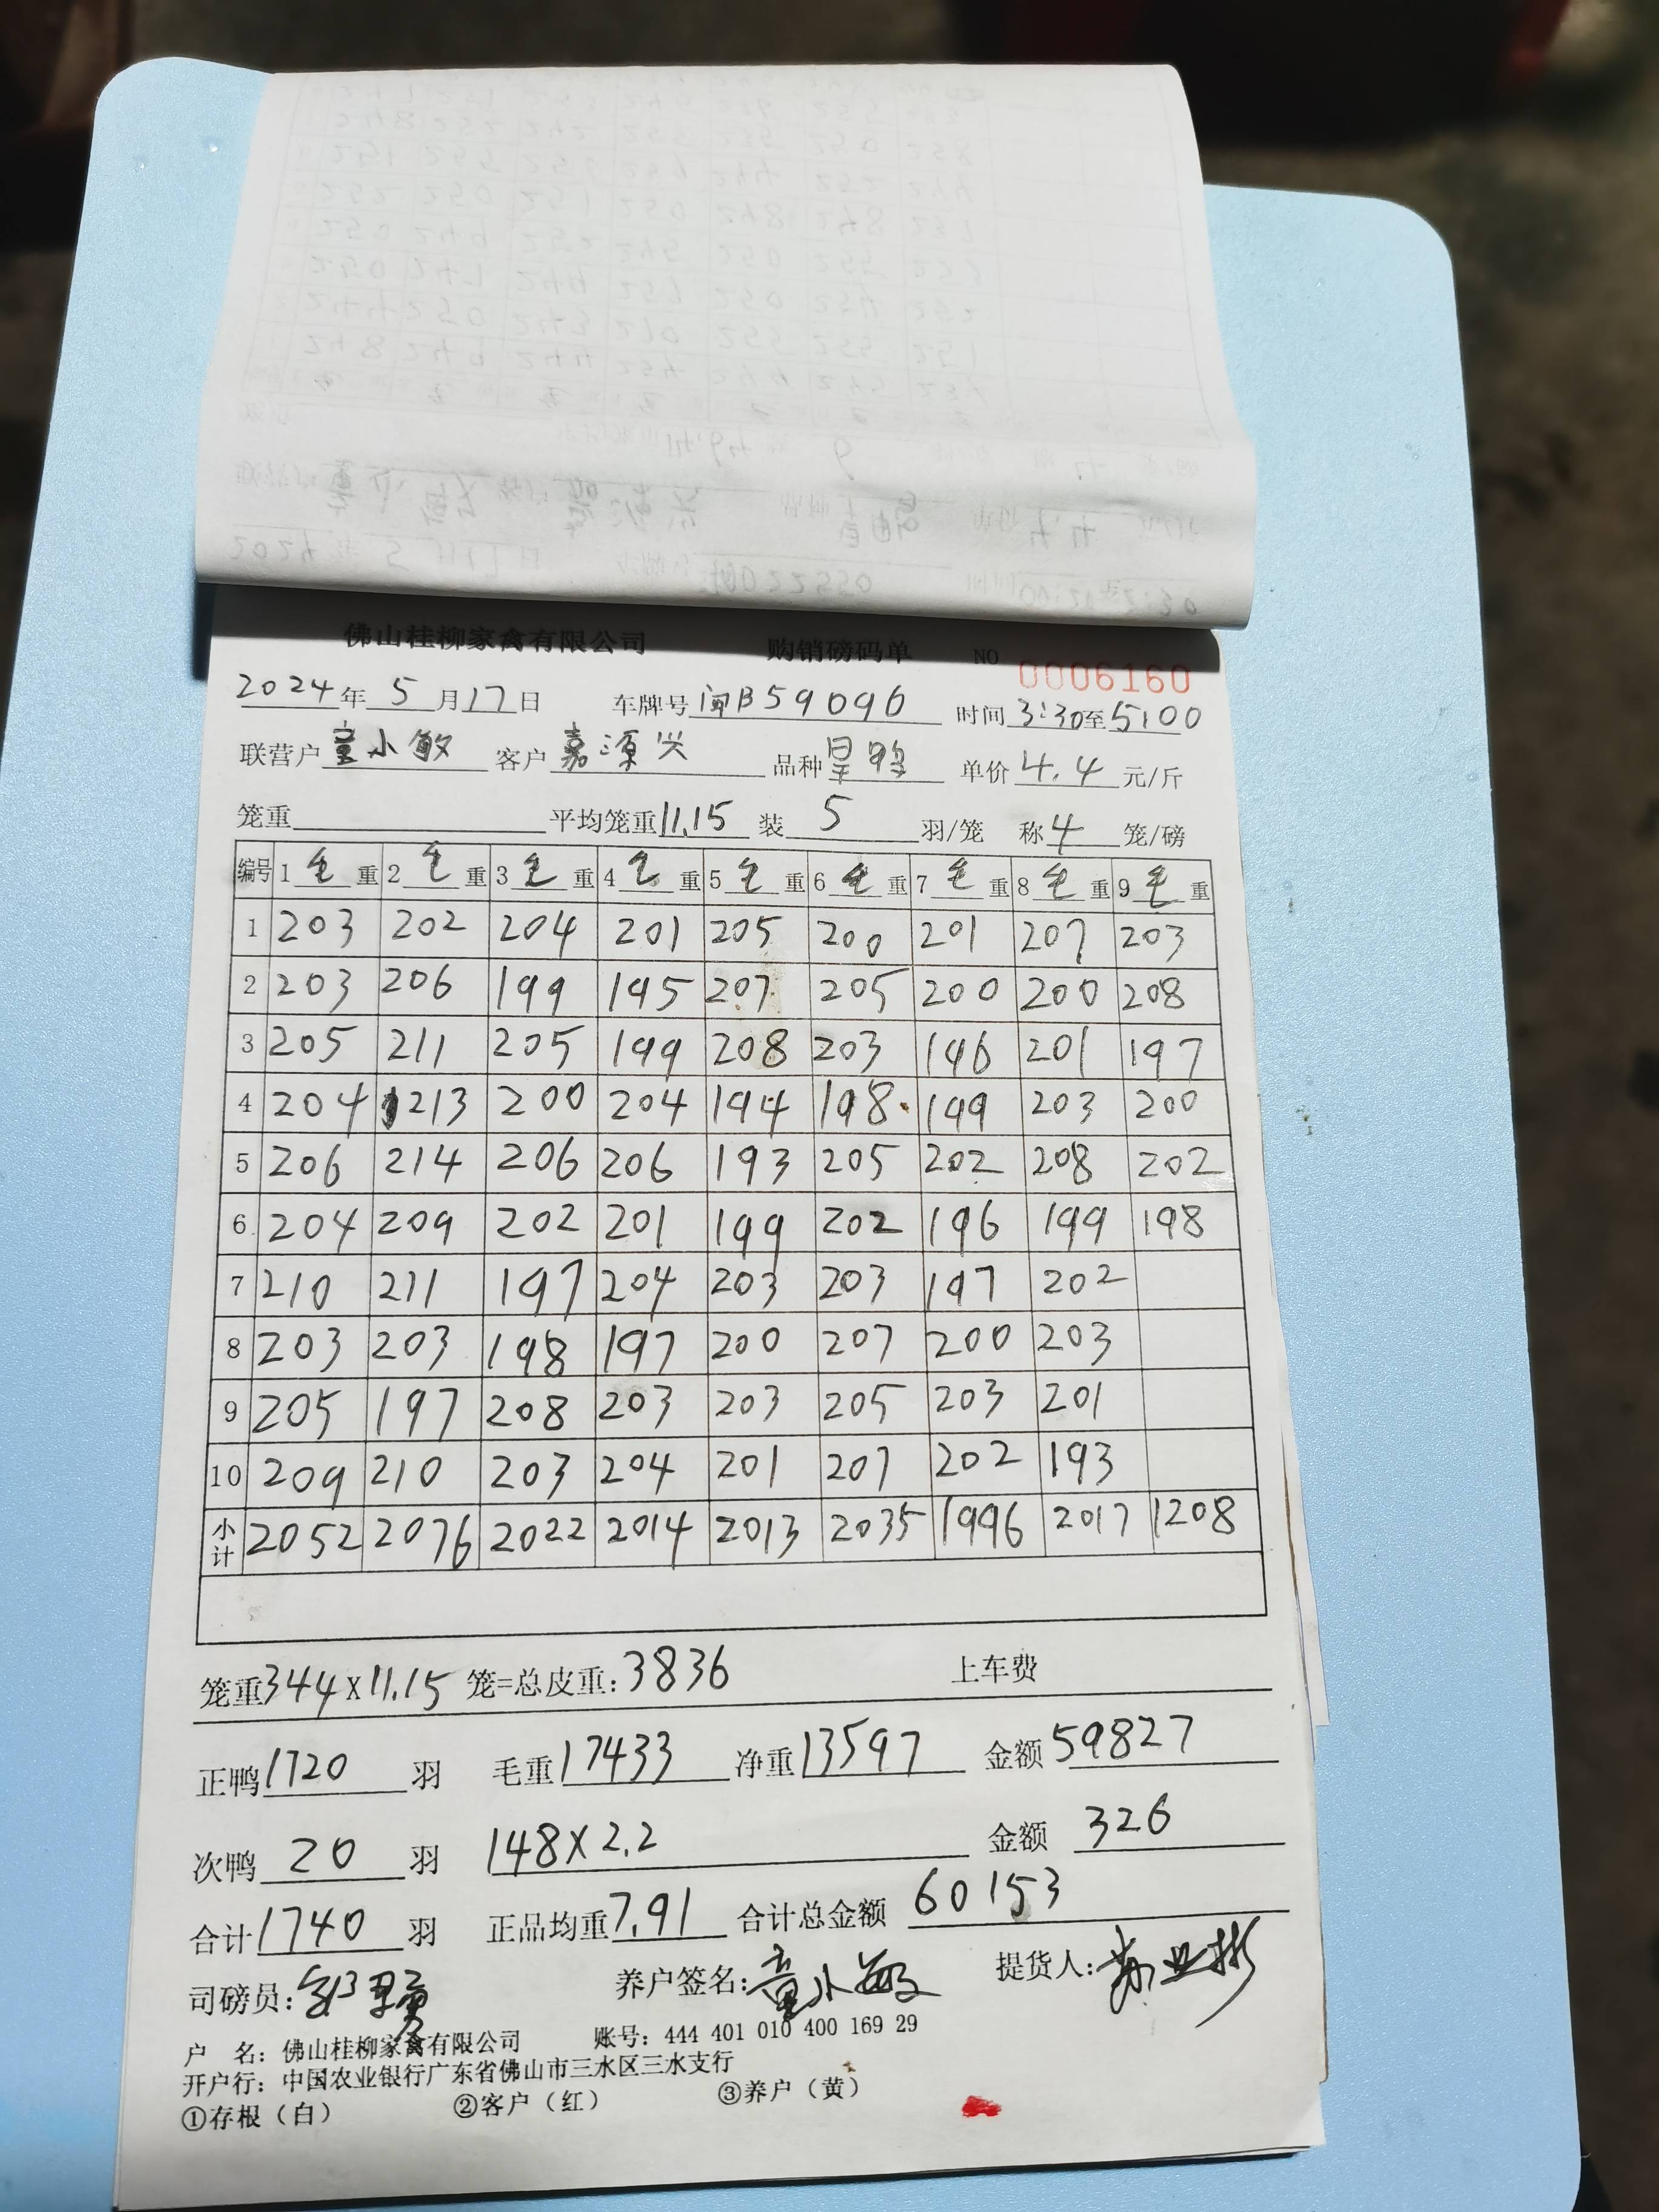 佛山桂柳家禽有限公司 购销磅码单 NO 0006160
2024年 5 月17日 车牌号闽B59096 时间3:30至5:00
联营户童小敏 客户嘉源兴 品种 单价4.4元/斤
笼重 平均笼重11.15 装 5 羽/笼 称4 笼/磅
编号 1毛重 2毛重 3毛重 4毛重 5毛重 6毛重 7毛重 8毛重 9毛重
1 203 202 204 201 205 200 201 207 203
2 203 206 199 195 207 205 200 200 208
3 205 211 205 199 208 203 196 201 197
4 204 213 200 204 194 198 199 203 200
5 206 214 206 206 193 205 202 208 202
6 204 209 202 201 199 202 196 199 198
7 210 211 197 204 203 203 197 202
8 203 203 198 197 200 207 200 203
9 205 197 208 203 203 205 203 201
10 209 210 203 204 201 207 202 193
小计 2052 2076 2022 2014 2013 2035 1996 2017 1208
笼重344X11.15 笼=总皮重:3836 上车费
正鸭1720羽 毛重17433 净重13597 金额59827
次鸭 20 羽 148X2.2 金额 326
合计1740羽 正品均重7.91 合计总金额 60153
司磅员: 养户签名:童小敏 提货人:
户 名: 佛山桂柳家禽有限公司 账号: 444 401 010 400 169 29
开户行: 中国农业银行广东省佛山市三水区三水支行
①存根(白) ②客户(红) ③养户(黄)